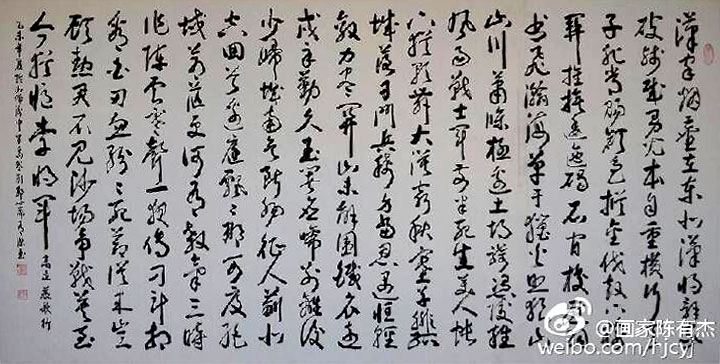 漢家烟塵在東北漢將辭家
破殘賊男兒本自重橫行天
子非常賜顏色摐金伐鼓下榆
關旌旆逶迤碣石間校尉羽
書飛瀚海單于獵火照狼山
山川蕭條極邊土胡騎憑陵雜
風雨戰士軍前半死生美人帳
下猶歌舞大漠窮秋塞草腓孤
城落日鬥兵稀身當恩遇恒輕
敵力盡關山未解圍鐵衣遠
戍辛勤久玉箸應啼別離後
少婦城南欲斷腸征人薊北
空回首邊庭飄飄那可度絕
域蒼茫更何有殺氣三時
作陣雲寒聲一夜傳刁斗相
看白刃血紛紛死節從來豈
顧勳君不見沙場爭戰苦至
今猶憶李將軍 高適燕歌行
@画家陈有杰
weibo.com/hjcyj